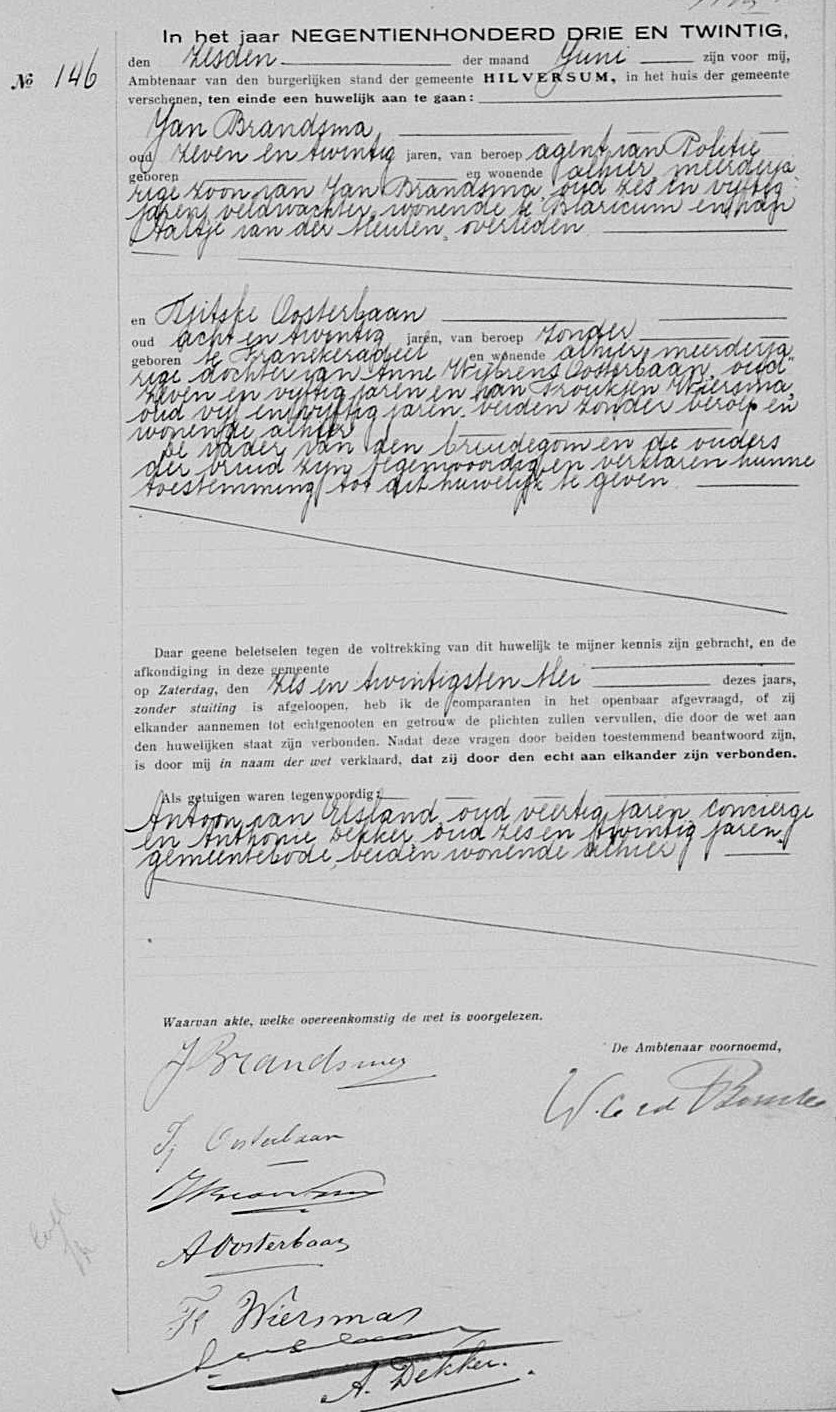 In het jaar NEGENTIENHONDERD DRIE EN TWINTIG,
den zesden der maand Juni zijn voor mij,
№ 146
Ambtenaar van den burgerlijken stand der gemeente HILVERSUM, in het huis der gemeente
verschenen, ten einde een huwelijk aan te gaan:
Jan Brandsma,
oud zeven en twintig jaren, van beroep agent van Politie
geboren en wonende alhier, meerderja-
rige zoon van Jan Brandsma, oud zes en vijftig
jaren, veldwachter, wonende te Blaricum en van
Aaltje van der Meulen, overleden
en Tjitske Oosterbaan
oud acht en twintig jaren, van beroep zonder
geboren te Franekeradeel en wonende alhier, meerderja
rige dochter van Anne Wijbrens Oosterbaan, oud
zeven en vijftig jaren en van Froukjen Wiersma,
oud vijf en vijftig jaren, beiden zonder beroep en
wonende alhier
De vader van den bruidegom en de ouders
der bruid zijn tegenwoordig en verklaren hunne
toestemming tot dit huwelijk te geven
Daar geene beletselen tegen de voltrekking van dit huwelijk te mijner kennis zijn gebracht, en de
afkondiging in deze gemeente
op Zaterdag, den zes en twintigsten Mei dezes jaars,
zonder stuiting is afgeloopen, heb ik de comparanten in het openbaar afgevraagd, of zij
elkander aannemen tot echtgenooten en getrouw de plichten zullen vervullen, die door de wet aan
den huwelijken staat zijn verbonden. Nadat deze vragen door beiden toestemmend beantwoord zijn,
is door mij in naam der wet verklaard, dat zij door den echt aan elkander zijn verbonden.
Als getuigen waren tegenwoordig:
Antoon van Elsland, oud veertig jaren, concierge
en Anthonie Dekker, oud zes en twintig jaren,
gemeentebode, beiden wonende alhier
Waarvan akte, welke overeenkomstig de wet is voorgelezen.
De Ambtenaar voornoemd,
J Brandsma
Tj Oosterbaan
JBrandsma
A Oosterbaan
Fr Wiersma
A. Dekker.